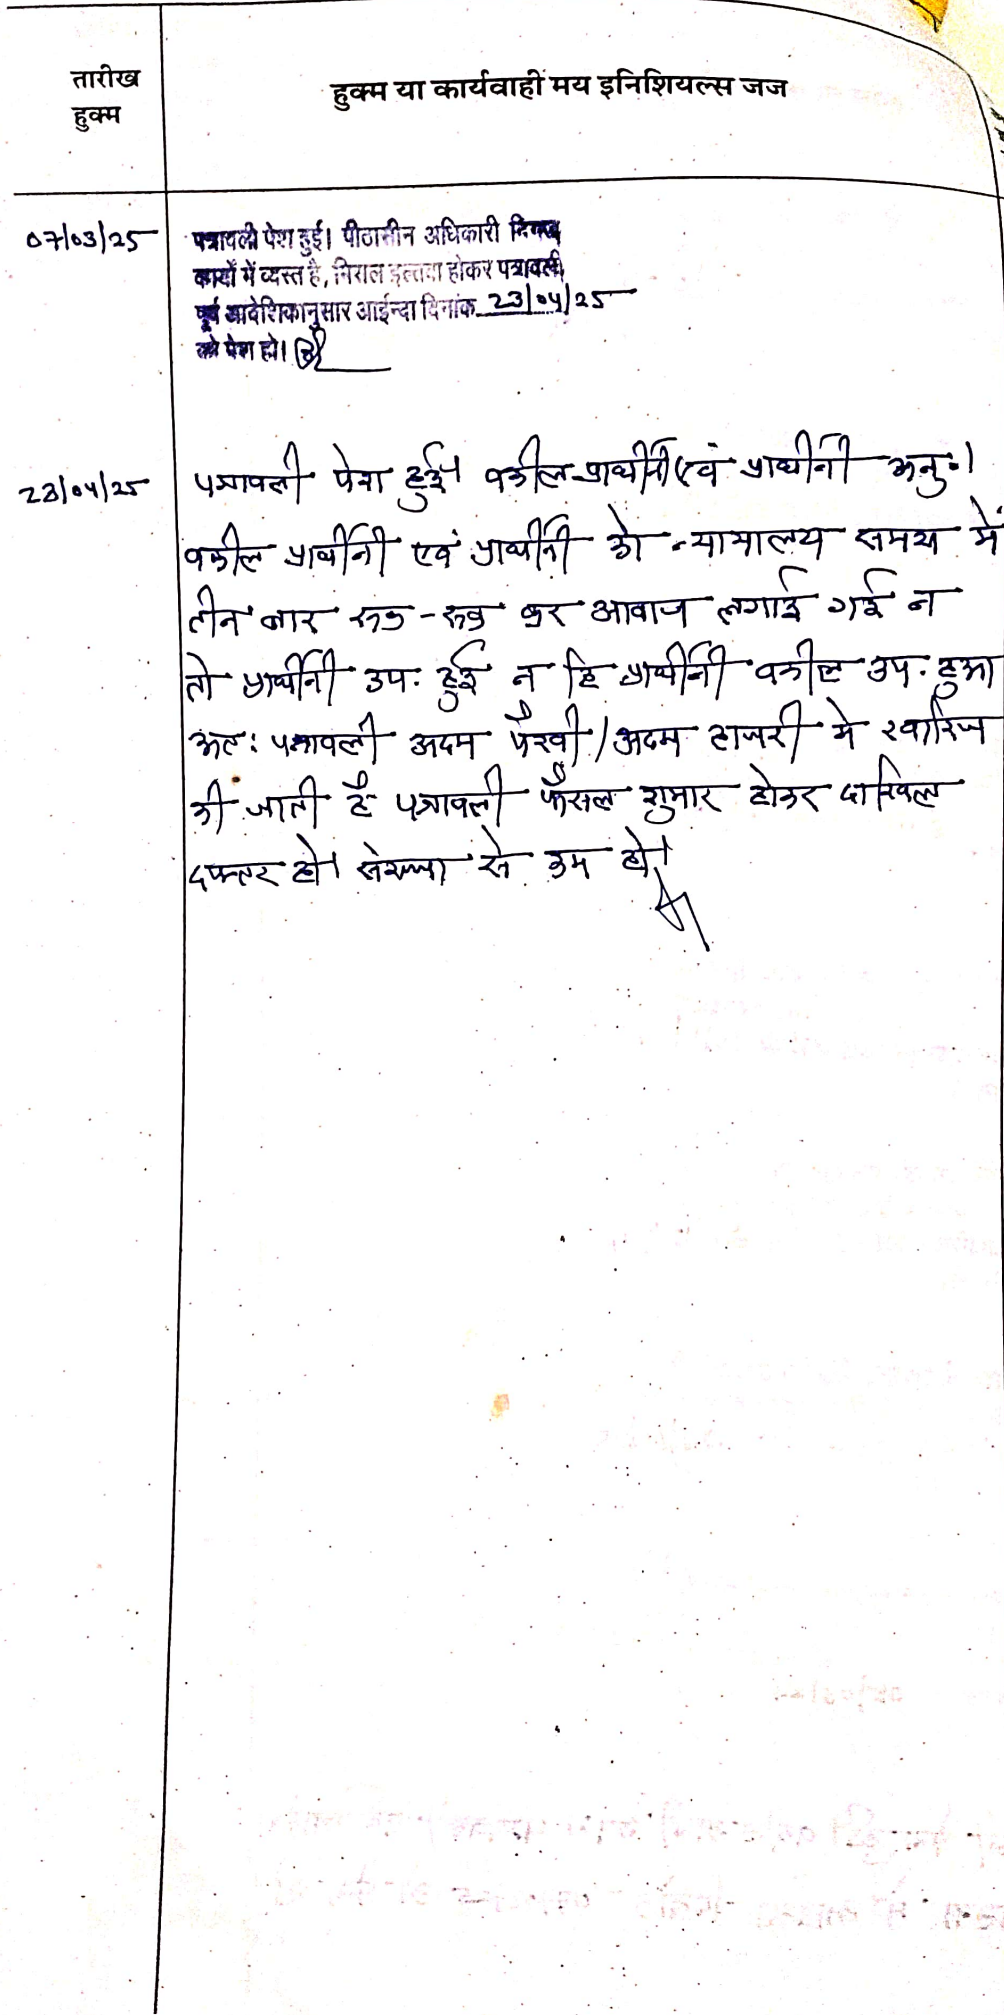 तारीख
हुक्म
हुक्म या कार्यवाही मय इनिशियल्स जज
07/03/25
पत्रावली पेश हुई। पीठासीन अधिकारी
कार्यों में व्यस्त है, होकर पत्रावली
पूर्व आदेशिकानुसार आईन्दा दिनांक 23/04/25
को पेश हो।
23/04/25
पत्रावली पेश हुई। वकील प्रार्थीनी एवं प्रार्थीनी अनु॰।
वकील प्रार्थीनी एवं प्रार्थीनी को न्यायालय समय में
तीन बार रूक-रूक कर आवाज लगाई गई न
तो प्रार्थीनी उप॰ हुई न हि प्रार्थीनी वकील उप॰ हुआ
अतः पत्रावली अदम पैरवी/अदम हाजरी मे खारिज
की जाती है पत्रावली फैसल शुमार होकर दाखिल
दफ्तर हो। से कम हो।